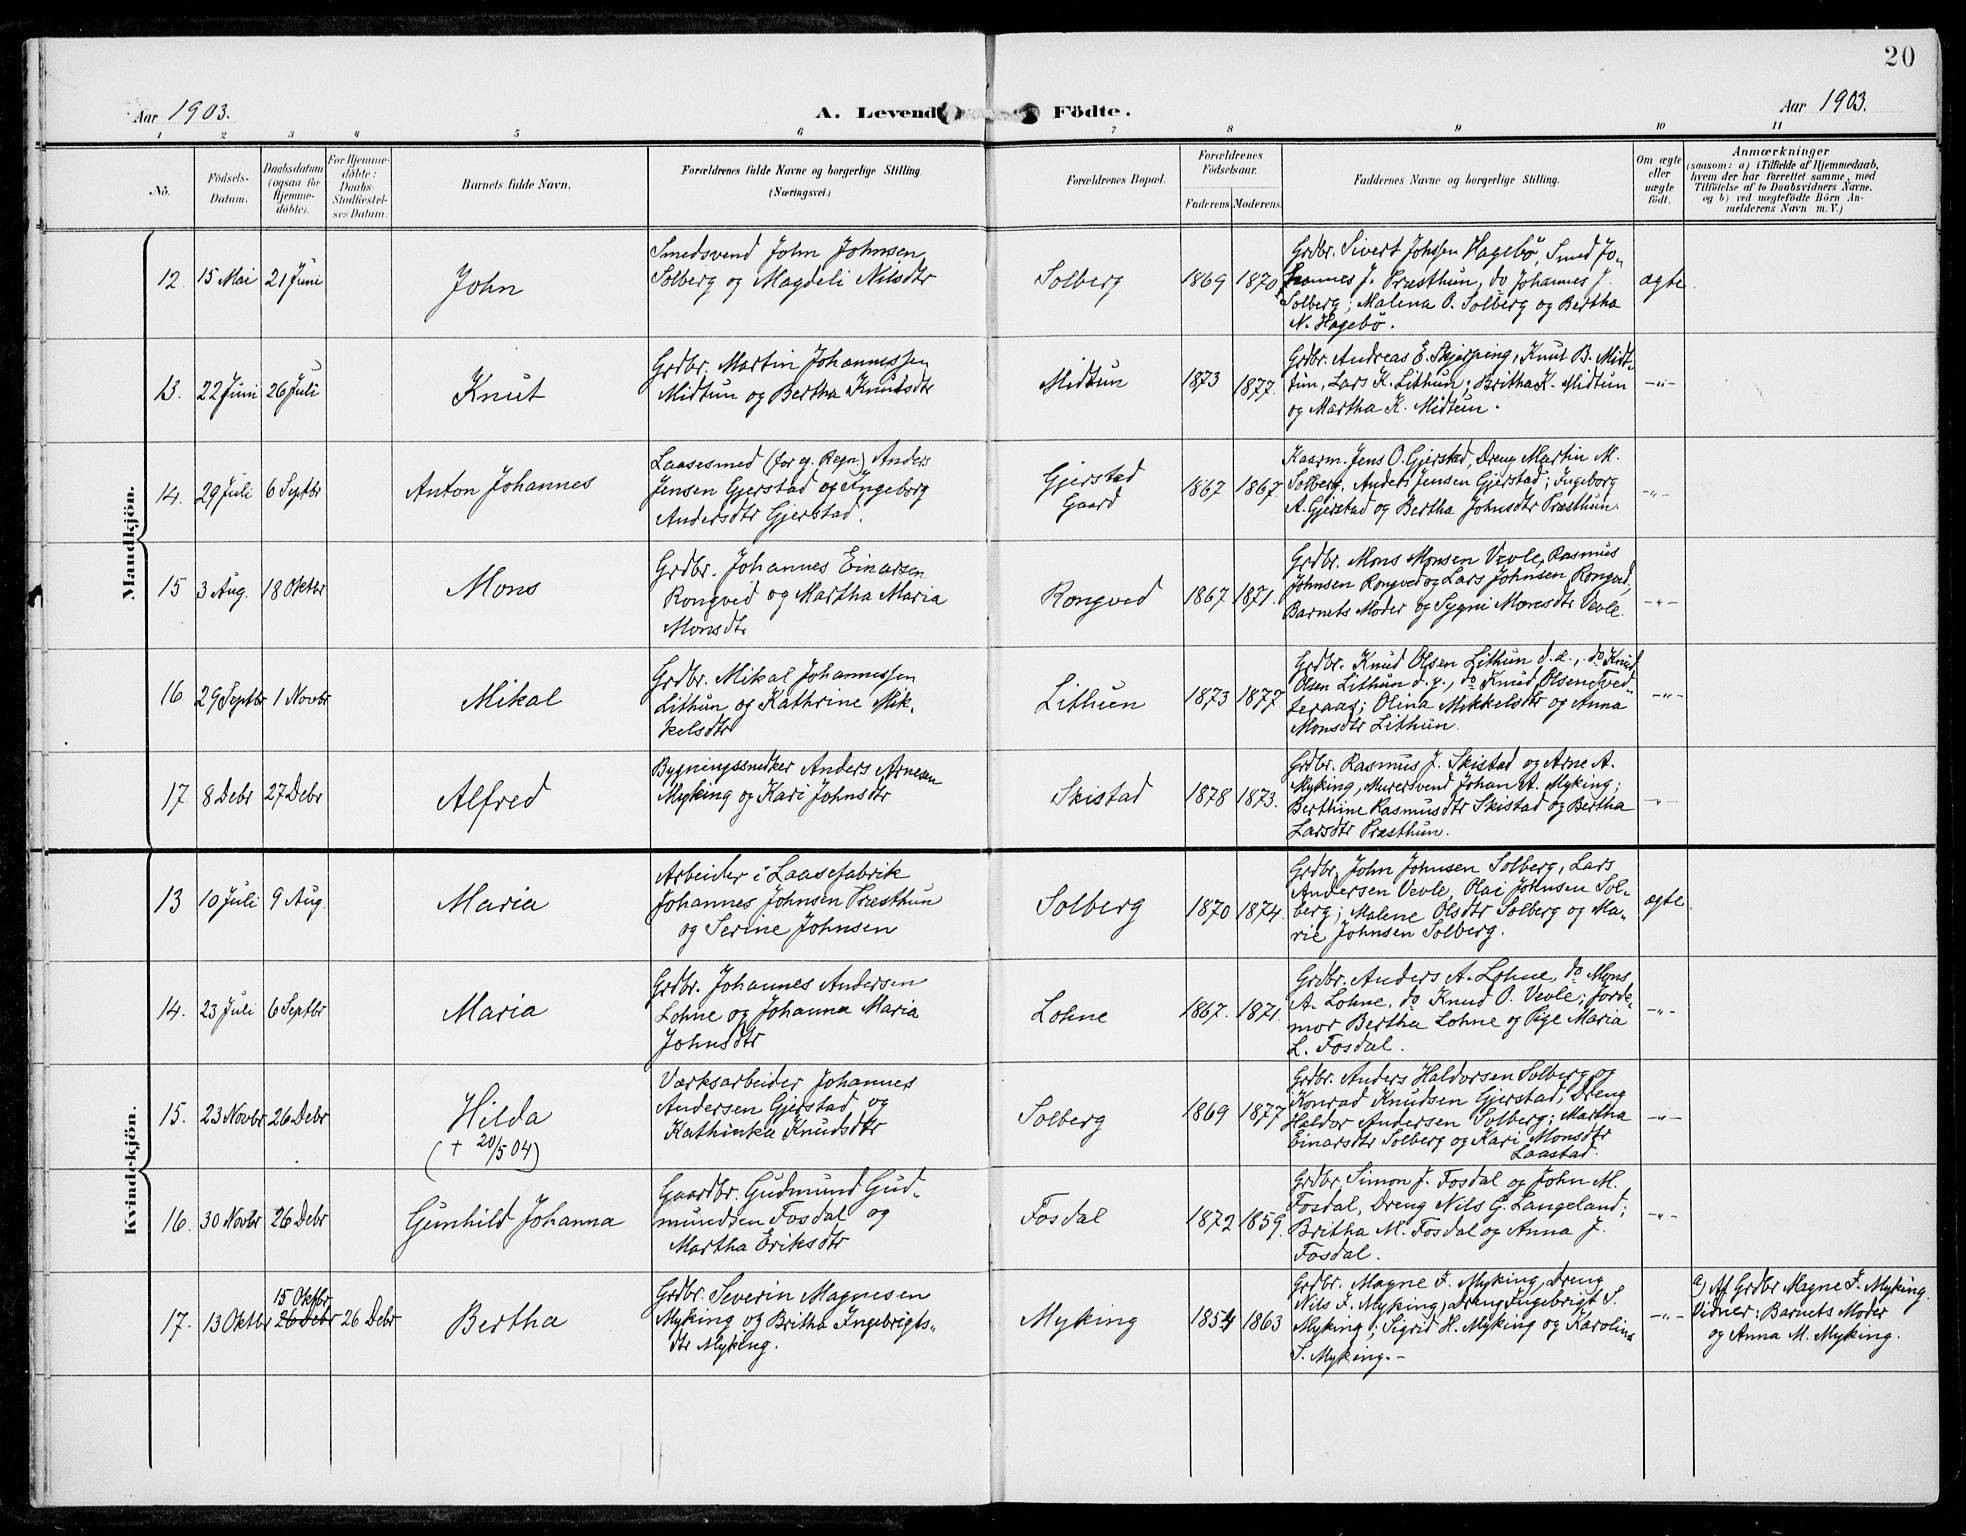 20
Aar 1903.
A. Levend
Födte.
Aar 1903.
1 2 3 4 5 6 7 8 9 10 11
No.
Födsels-
Datum.
Daabsdatum
(ogsaa for
Hjemme-
döbte).
For Hjemme-
döbte:
Daabs-
Stadfæstel-
ses Datum.
Barnets fulde Navn.
Forældrenes fulde Navne og borgerlige Stilling.
(Næringsvei.)
Forældrenes Bopæl.
Forældrenes
Födselsaar.
Faderens. Moderens.
Faddernes Navne og borgerlige Stilling.
Om ægte
eller
uægte
født.
Anmærkninger
(saasom: a) i Tilfælde af Hjemmedaab,
hvem der har forrettet samme, med
Tilföielse af to Daabsvidners Navne.
og b) ved uægtefödte Börn An-
melderens Navn m. V.)
Mandkjön.
12. 15 Mai 21 Juni
John
Smedsvend John Johnsen
Solberg og Magdeli Nilsdtr
Solberg
1869 1870
Grdbr. Sivert Johssen Hagebö, Smed Jo-
hannes J. Præsthun, do Johannes J.
Solberg; Malena O. Solberg og Bertha
N. Hagebö.
ægte
13. 22 Juni 26 Juli
Knut
Grdbr. Martin Johannessen
Midtun og Bertha Knutsdtr
Midtun
1873 1877.
Grdbr. Andreas E. Skjerping, Knut B. Midt-
tun, Lars K. Lithun; Britha K. Midtun
og Martha K. Midtun.
-"-
14. 29 Juli 6 Septbr
Anton Johannes
Laasesmed (for eg. Regn) Anders
Jensen Gjerstad og Ingeborg
Andersdtr Gjerstad.
Gjerstad
Gaard
1867 1867.
Kaarm. Jens O. Gjerstad, Dreng Martin M.
Solberg, Anders Jensen Gjerstad; Ingeborg
A. Gjerstad og Bertha Johnsdtr Præsthun.
-"-
15 3 Aug. 18 Oktbr
Mons
Grdbr. Johannes Einarsen
Rongved og Martha Maria
Monsdtr
Rongved
1867 1871.
Grdbr. Mons Monsen Vevle, Rasmus
Johnsen Rongved og Lars Johnsen Rongved,
Barnets Moder og Sygni Monsdtr Vevle.
-"-
16 29 Septbr 1 Novbr
Mikal
Grdbr. Mikal Johannessen
Lithun og Kathrine Mik-
kelsdtr
Lithun
1873 1877
Grdbr. Knud Olsen Lithun d. æ., do Knud
Olsen Lithun d. y., do Knud Olsen Tved-
teraas; Olina Mikkelsdtr og Anna
Monsdtr Lithun.
-"-
17. 8 Debr 27 Debr
Alfred
Bygningssnedker Anders Arnesen
Myking og Kari Johnsdtr
Skistad
1878 1873.
Grdbr. Rasmus J. Skistad og Arne A.
Myking, Murersvend Johan A. Myking;
Berthine Rasmusdtr Skistad og Bertha
Larsdtr Præsthun.
-"-
Kvindekjön.
13 10 Juli 9 Aug.
Maria
Arbeider i Laasefabrik
Johannes Johnsen Præsthun
og Serine Johnsen
Solberg
1870 1874.
Grdbr. John Johnsen Solberg, Lars
Andersen Vevle, Olai Johnsen Sol-
berg; Malene Olsdtr Solberg og Ma-
rie Johnsen Solberg.
ægte
14. 23 Juli 6 Septbr
Maria
Grdbr. Johannes Andersen
Lohne og Johanna Maria
Johnsdtr
Lohne
1867. 1871.
Grdbr. Anders A. Lohne, do Mons
A. Lohne, do Knud O. Vevle; Jorde-
mor Bertha Lohne og Pige Maria
L. Fosdal.
-"-
15. 23 Novbr 26 Debr
Hilda
(+ 20/5 04)
Værksarbeider Johannes
Andersen Gjerstad og
Kathinka Knudsdtr
Solberg
1869 1877
Grdbr. Anders Haldorsen Solberg og
Konrad Knudsen Gjerstad, Dreng
Haldor Andersen Solberg; Martha
Einarsdtr Solberg og Kari Monsdtr
Laastad.
-"-
16. 30 Novbr 26 Debr
Gunhild Johanna
Gaardbr. Gudmund Gud-
mundsen Fosdal og
Martha Eriksdtr
Fosdal
1872 1859.
Grdbr. Simon J. Fosdal og John M.
Fosdal, Dreng Nils G. Langeland;
Britha M. Fosdal og Anna J.
Fosdal.
-"-
17. 13 Oktbr 15 Oktbr 26 Debr 26 Debr
Bertha
Grdbr. Severin Magnesen
Myking og Britha Ingebrigts-
dtr Myking.
Myking
1854 1863
Grdbr. Magne F. Myking, Dreng
Nils F. Myking, Dreng Ingebrigt S.
Myking; Sigrid H. Myking og Karolina
S. Myking.-
-"-
a) Af Grdbr Magne F. Myking.
Vidner: Barnets Moder
og Anna M. Myking.